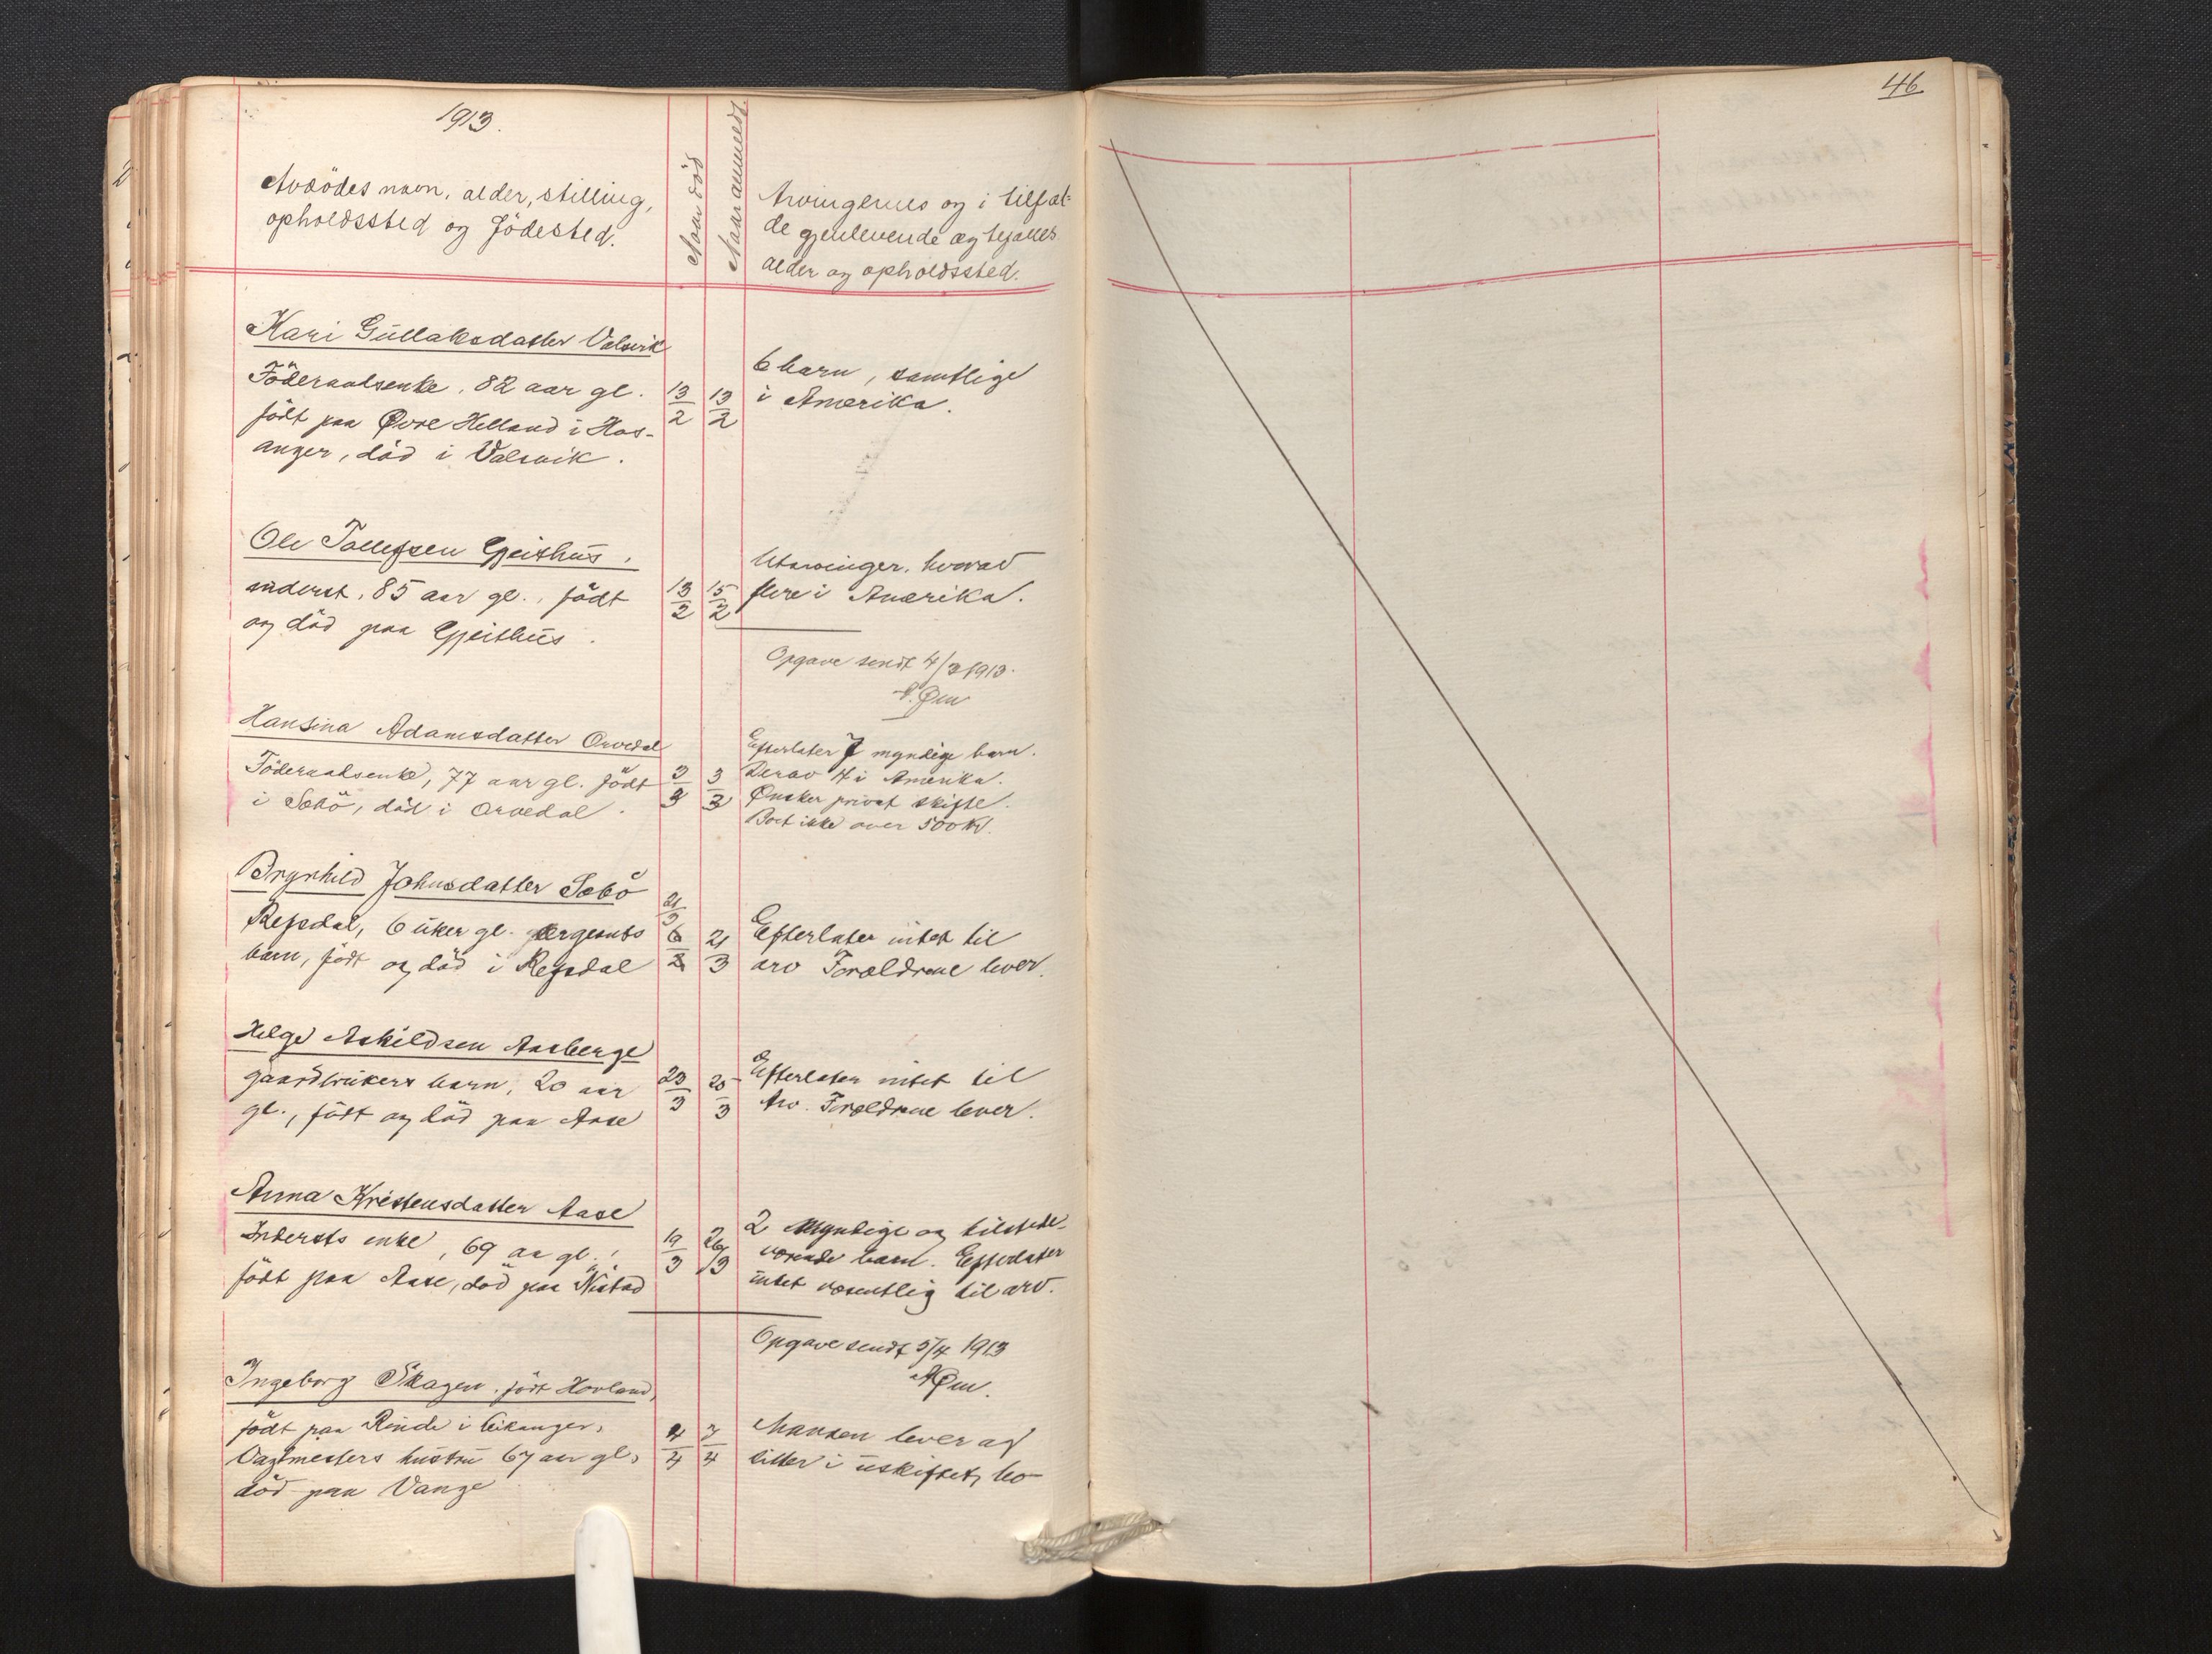 46
1913.
Avdödes navn, alder, stilling,
opholdssted og födested.
Naar död
Naar anmeldt
Arvingernes og i tilfæl-
de gjenlevende ægtefælles
alder og opholdssted.
Kari Gullaksdatter Valsvik
Föderaadsenke, 82 aar gl.
født paa Øvre Helland i Hos-
anger, död i Valsvik.
13/2
13/2
6 barn, samtlige
i Amerika.
Ole Tollefsen Gjeithus,
inderst, 85 aar gl., födt
og död paa Gjeithus.
13/2
15/2
Utarvinger, hvorav
flere i Amerika.
Opgave sendt 4/3 1913.
Øen
Hansina Adamsdatter Orvedal
Föderaadsenke, 77 aar gl. födt
i Sæbö, död i Orvedal.
3/3
3/3
Efterlater 7 myndige barn.
Derav 4 i Amerika.
Ønsker privat skifte.
Boet ikke over 500 Kr.
Brynhild Johnsdatter Sæbö
Refsdal, 6 uker gl.
barn, födt og död i Refsdal
21/3
6/2
21/3
Efterlater intet til
arv Forældrene lever.
Helge Askildsen Aasberge
gaardbrukers barn, 20 aar
gl., födt og död paa Aase
23/3
25/3
Efterlater intet til
Arv. Forældrene lever.
Anna Kristensdatter Aase
Indersts enke, 69 aa gl.,
födt paa Aase, död paa Nistad
19/3
26/3
2 Myndige og tilstede-
værende barn. Efterlater
intet væsentlig til arv.
Opgave sendt 5/4 1913
Øen.
Ingeborg Skagen, født Hovland,
födt paa Rinde i Leikanger,
Vagtmesters hustru 67 aar gl,
död paa Vange
4/4
7/4
Manden lever og
sitter i uskiftet bo